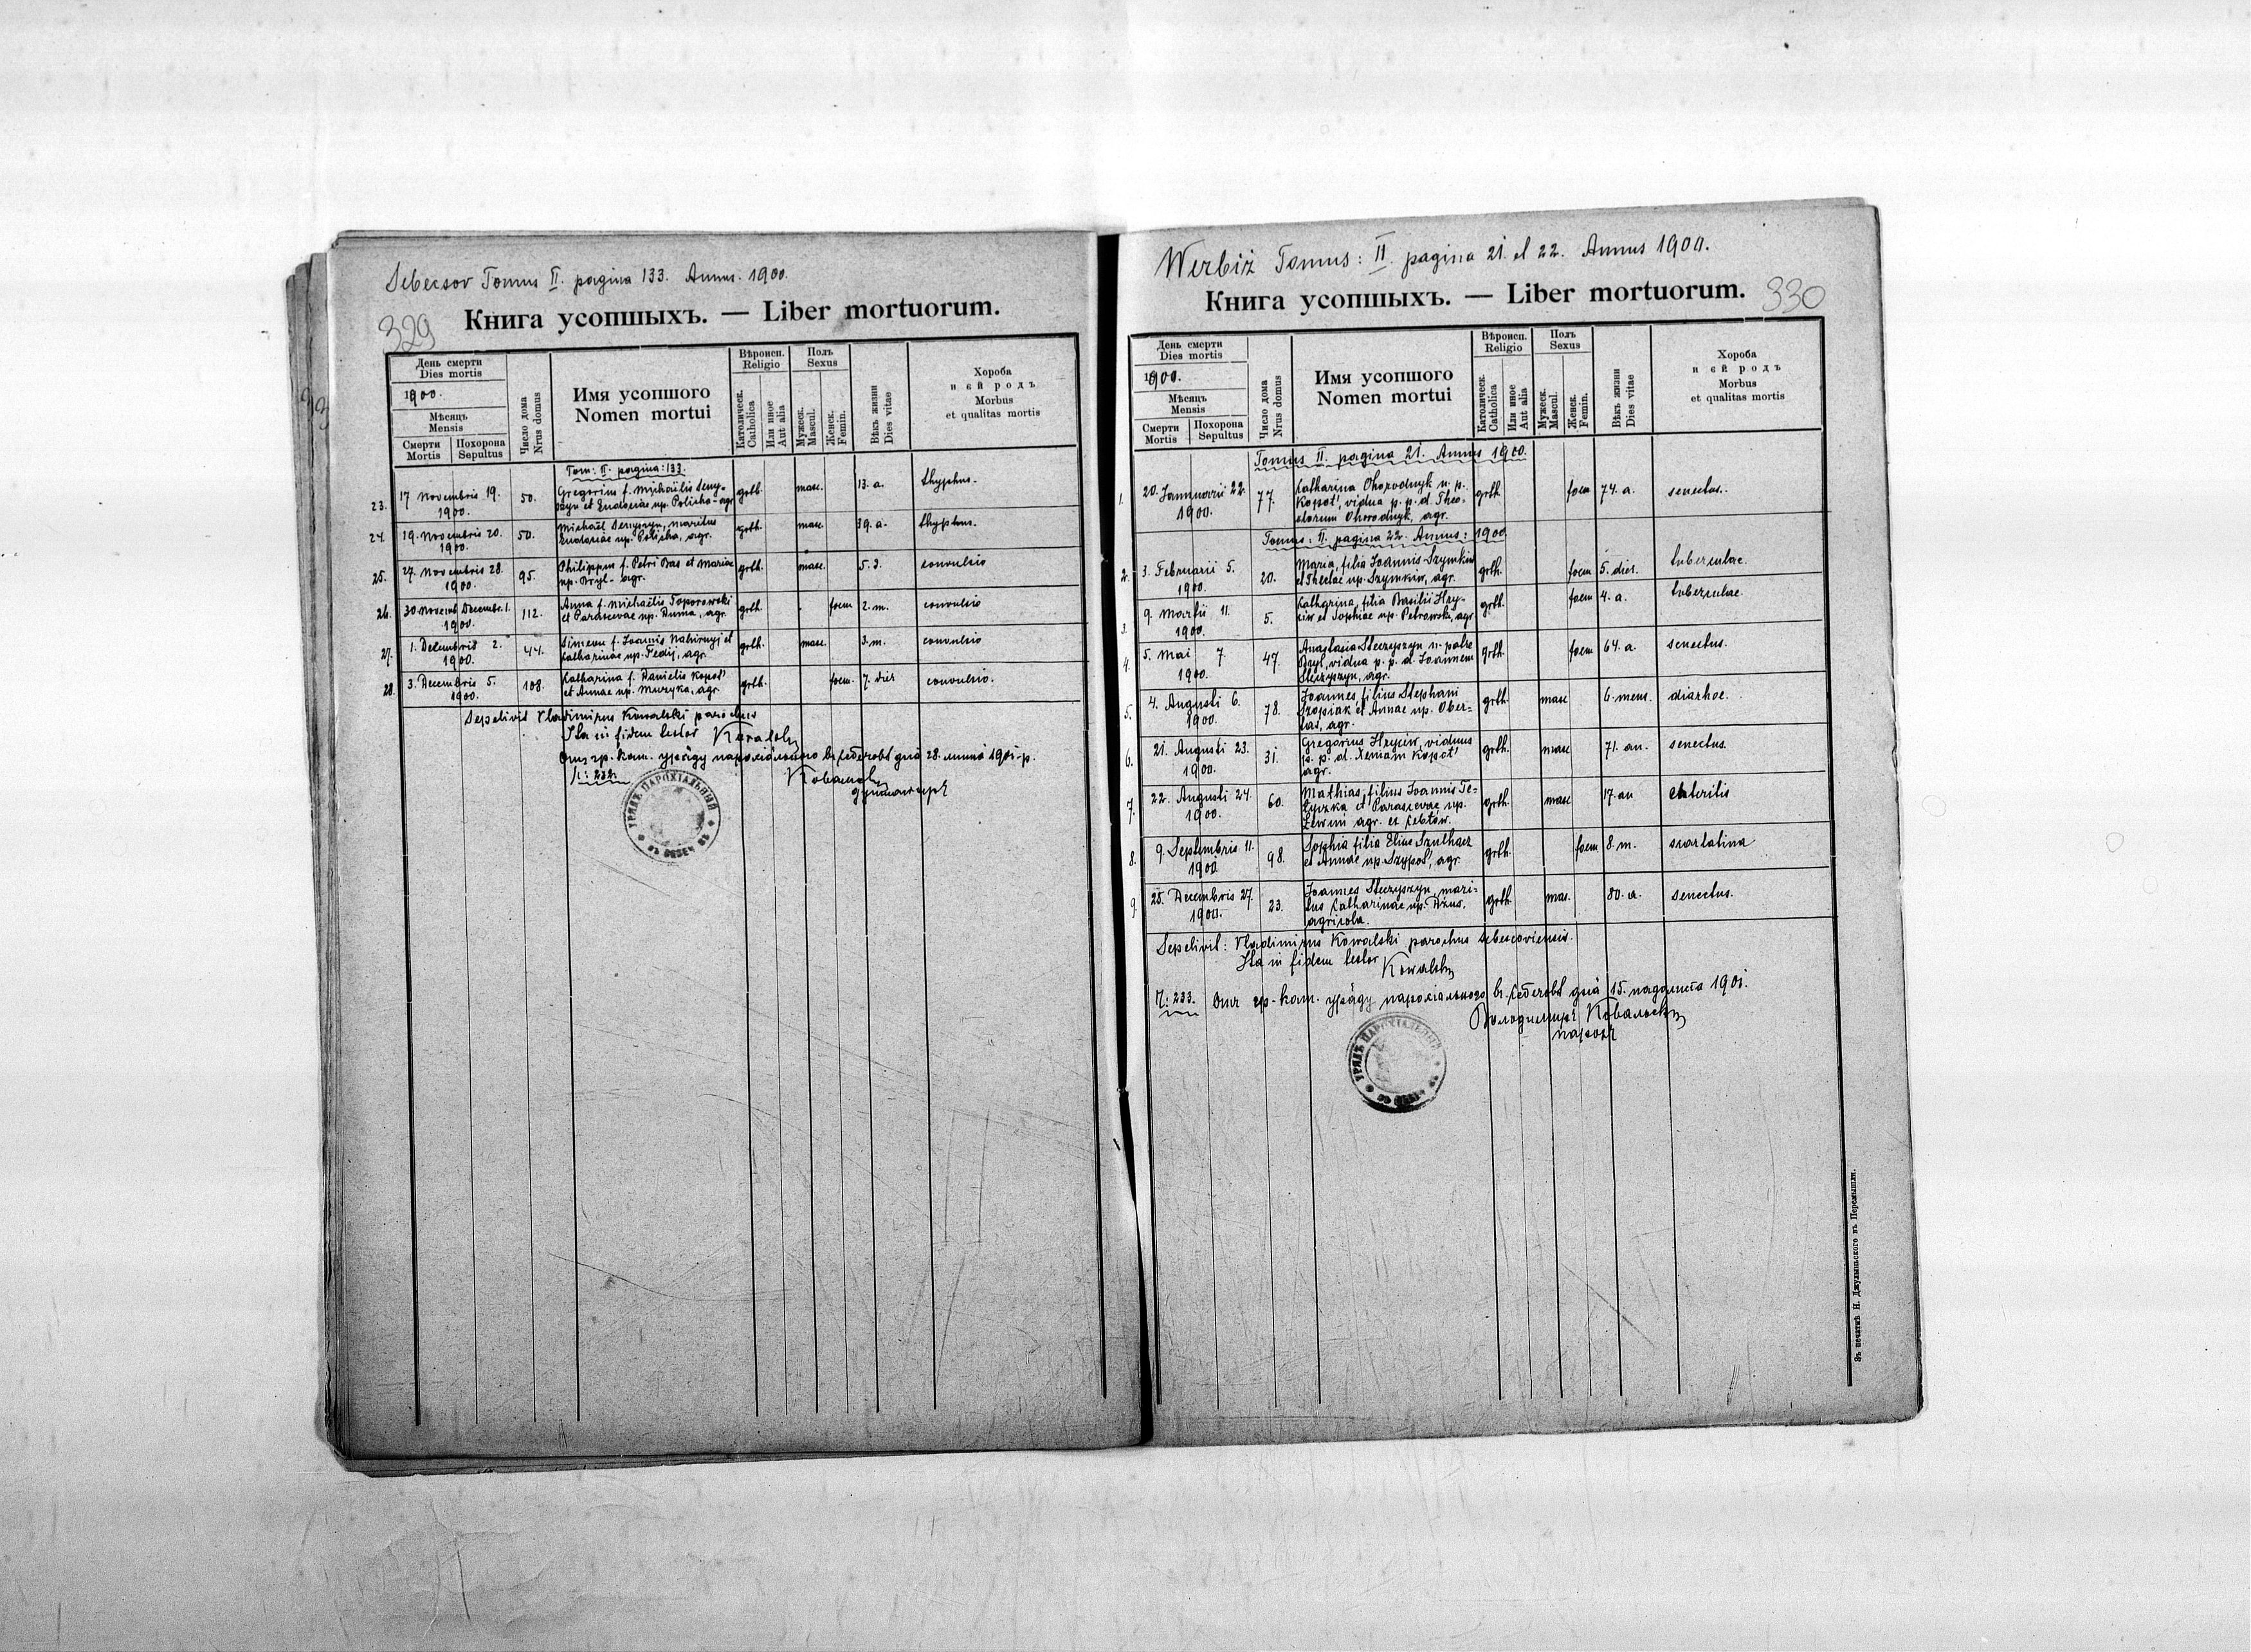 Tomus II. pagina 133. Annus. 1900.
329
Книга усопшыхъ. — Liber mortuorum.
День смерти
Dies mortis
1900.
Мѣсяць
Mensis
Смерти
Mortis
Похорона
Sepultus
Число дома
Nrus domus
Имя усопшого
Nomen mortui
Вѣроисп.
Religio
Католическ.
Catholica
Или иное
Aut alia
Полъ
Sexus
Мужеск.
Mascul.
Женск.
Femin.
Вѣкъ жизни
Dies vitae
Хороба
и еѣ родъ
Morbus
et qualitas mortis
Tom: II. pagina: 133.
23. 17 Novembris 19. 1900. 50. Gregorius f. Michaëlis Seny-
szyn et Eudociae np. Policha - agr. grth. masc. 13. a. thyphus.
24. 19. Novembris 20. 1900. 50. Michaël Senyszyn, maritus
Eudociae np. Policha, agr. grth. masc. 39. a. thyphus.
25. 27. Novembris 28. 1900. 95. Philippus f. Petri Bas et Mariae
np. Bryl - agr. grth. masc. 5. d. convulsio
26. 30 Novemb Decembr. 1. 1900. 112. Anna f. Michaëlis Toporowski
et Parascevae np. Duma, agr. grth. foem 2. m. convulsio
27. 1. Decembris 2. 1900. 44. Simeon f. Joannis Nahirnyj et
Catharinae np. Fedij, agr. grth. masc. 3. m. convulsio
28. 3. Decembris 5. 1900. 108. Katharina f. Danielis Kopot'
et Annae np. Muzyka, agr. grth. foem. 7. dies convulsio.
Sepelivit Vladimirus Kowalski parochus
Ita in fidem testor Kowalsky
Отъ гр. кат. уряду парохіяльного въ Себечовѣ дня 28. 1901. р.
Ч: 232.
Ковальскій
УРЯДЪ ПАРОХІАЛЬНЫЙ
Werbiż Tomus: II. pagina 21. et 22. Annus 1900.
330
Книга усопшыхъ. — Liber mortuorum.
День смерти
Dies mortis
1900.
Мѣсяць
Mensis
Смерти
Mortis
Похорона
Sepultus
Число дома
Nrus domus
Имя усопшого
Nomen mortui
Вѣроисп.
Religio
Католическ.
Catholica
Или иное
Aut alia
Полъ
Sexus
Мужеск.
Mascul.
Женск.
Femin.
Вѣкъ жизни
Dies vitae
Хороба
и еѣ родъ
Morbus
et qualitas mortis
Tomus II. pagina 21. Annus 1900.
1. 20. Jannuarii 22. 1900. 77. Katharina Ohorodnyk n. p.
Kopot', vidua p. p. d. Theo-
dorum Ohorodnyk, agr. grth. foem 74. a. senectus.
Tomus: II. pagina 22. Annus: 1900
2. 3. Februarii 5. 1900. 20. Maria, filia Joannis Szymkiw
et Theclae np. Szymkiw, agr. grth. foem 5. dies. tuberculae.
3. 9. Martii 11. 1900. 5. Katharina, filia Basilii Hry-
ciw et Sophiae np. Petrowska, agr grth. foem 4. a. tuberculae.
4. 5. Mai 7. 1900. 47. Anastasia Steczyszyn n. patre
Bryl, vidua p. p. d. Joannem
Steczyszyn, agr. grth. foem 64. a. senectus.
5. 4. Augusti 6. 1900. 78. Joannes, filius Stephani
Szopiak et Annae np. Ober-
tas, agr. grth. masc 6. mens. diarhoe.
6. 21. Augusti 23. 1900. 31. Gregorius Hryciw, viduus
p. p. d. Xeniam Kopot'
agr. grth. masc 71. an. senectus.
7. 22. Augusti 24. 1900. 60. Mathias, filius Joannis Te-
życzka et Parascevae np.
agr. grth. masc 17. an enteritis
8. 9. Septembris 11. 1900 98. Sophia filia Eliae Szulhacz
et Annae np. Szypot', agr. grth. foem 8. m. scarlatina
9. 25. Decembris 27. 1900. 23. Joannes Steczyszyn, mari-
tus Catharinae np. Dżus,
agricola. grth. mas. 80. a. senectus.
Sepelivit: Vladimirus Kowalski parochus sebecoviensis.
Ita in fidem testor Kowalsky
Ч: 233. Отъ гр-кат. уряду парохіяльного въ Себечовѣ дня 15. падолиста 1901.
Володимиръ Ковальскій
парохъ
УРЯДЪ ПАРОХІАЛЬНЫЙ
Зъ печатнѣ И. Джулыньского въ Перемышли.